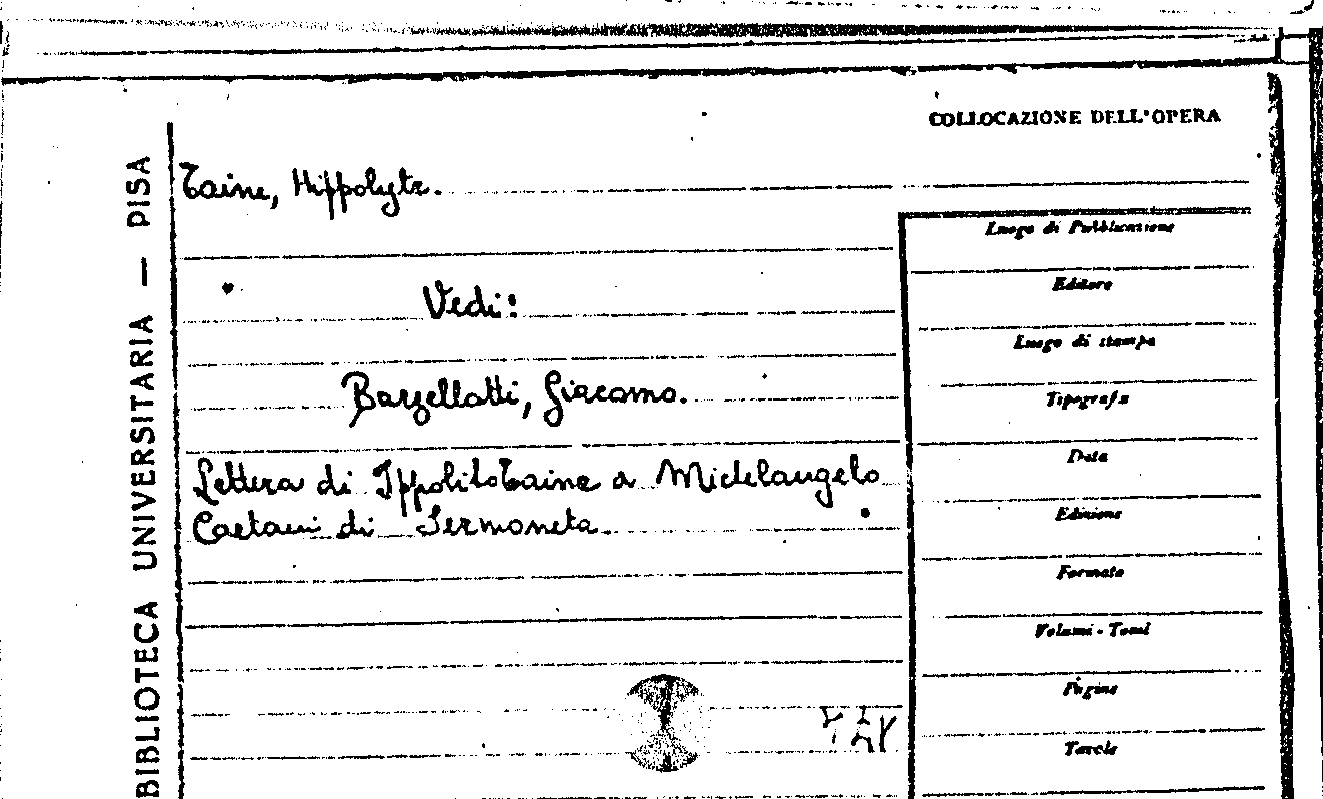 COLLOCAZIONE DELL'OPERA
Taine, Hippolyte.
Vedi:
Barzellotti, Giacomo.
Lettera di Ippolito Taine a Michelangelo
Caetani di Sermoneta.
BIBLIOTECA UNIVERSITARIA — PISA
Luogo di Pubblicazione
Editore
Luogo di stampa
Tipografia
Data
Edizione
Formato
Volumi - Tomi
Pagine
Tavole